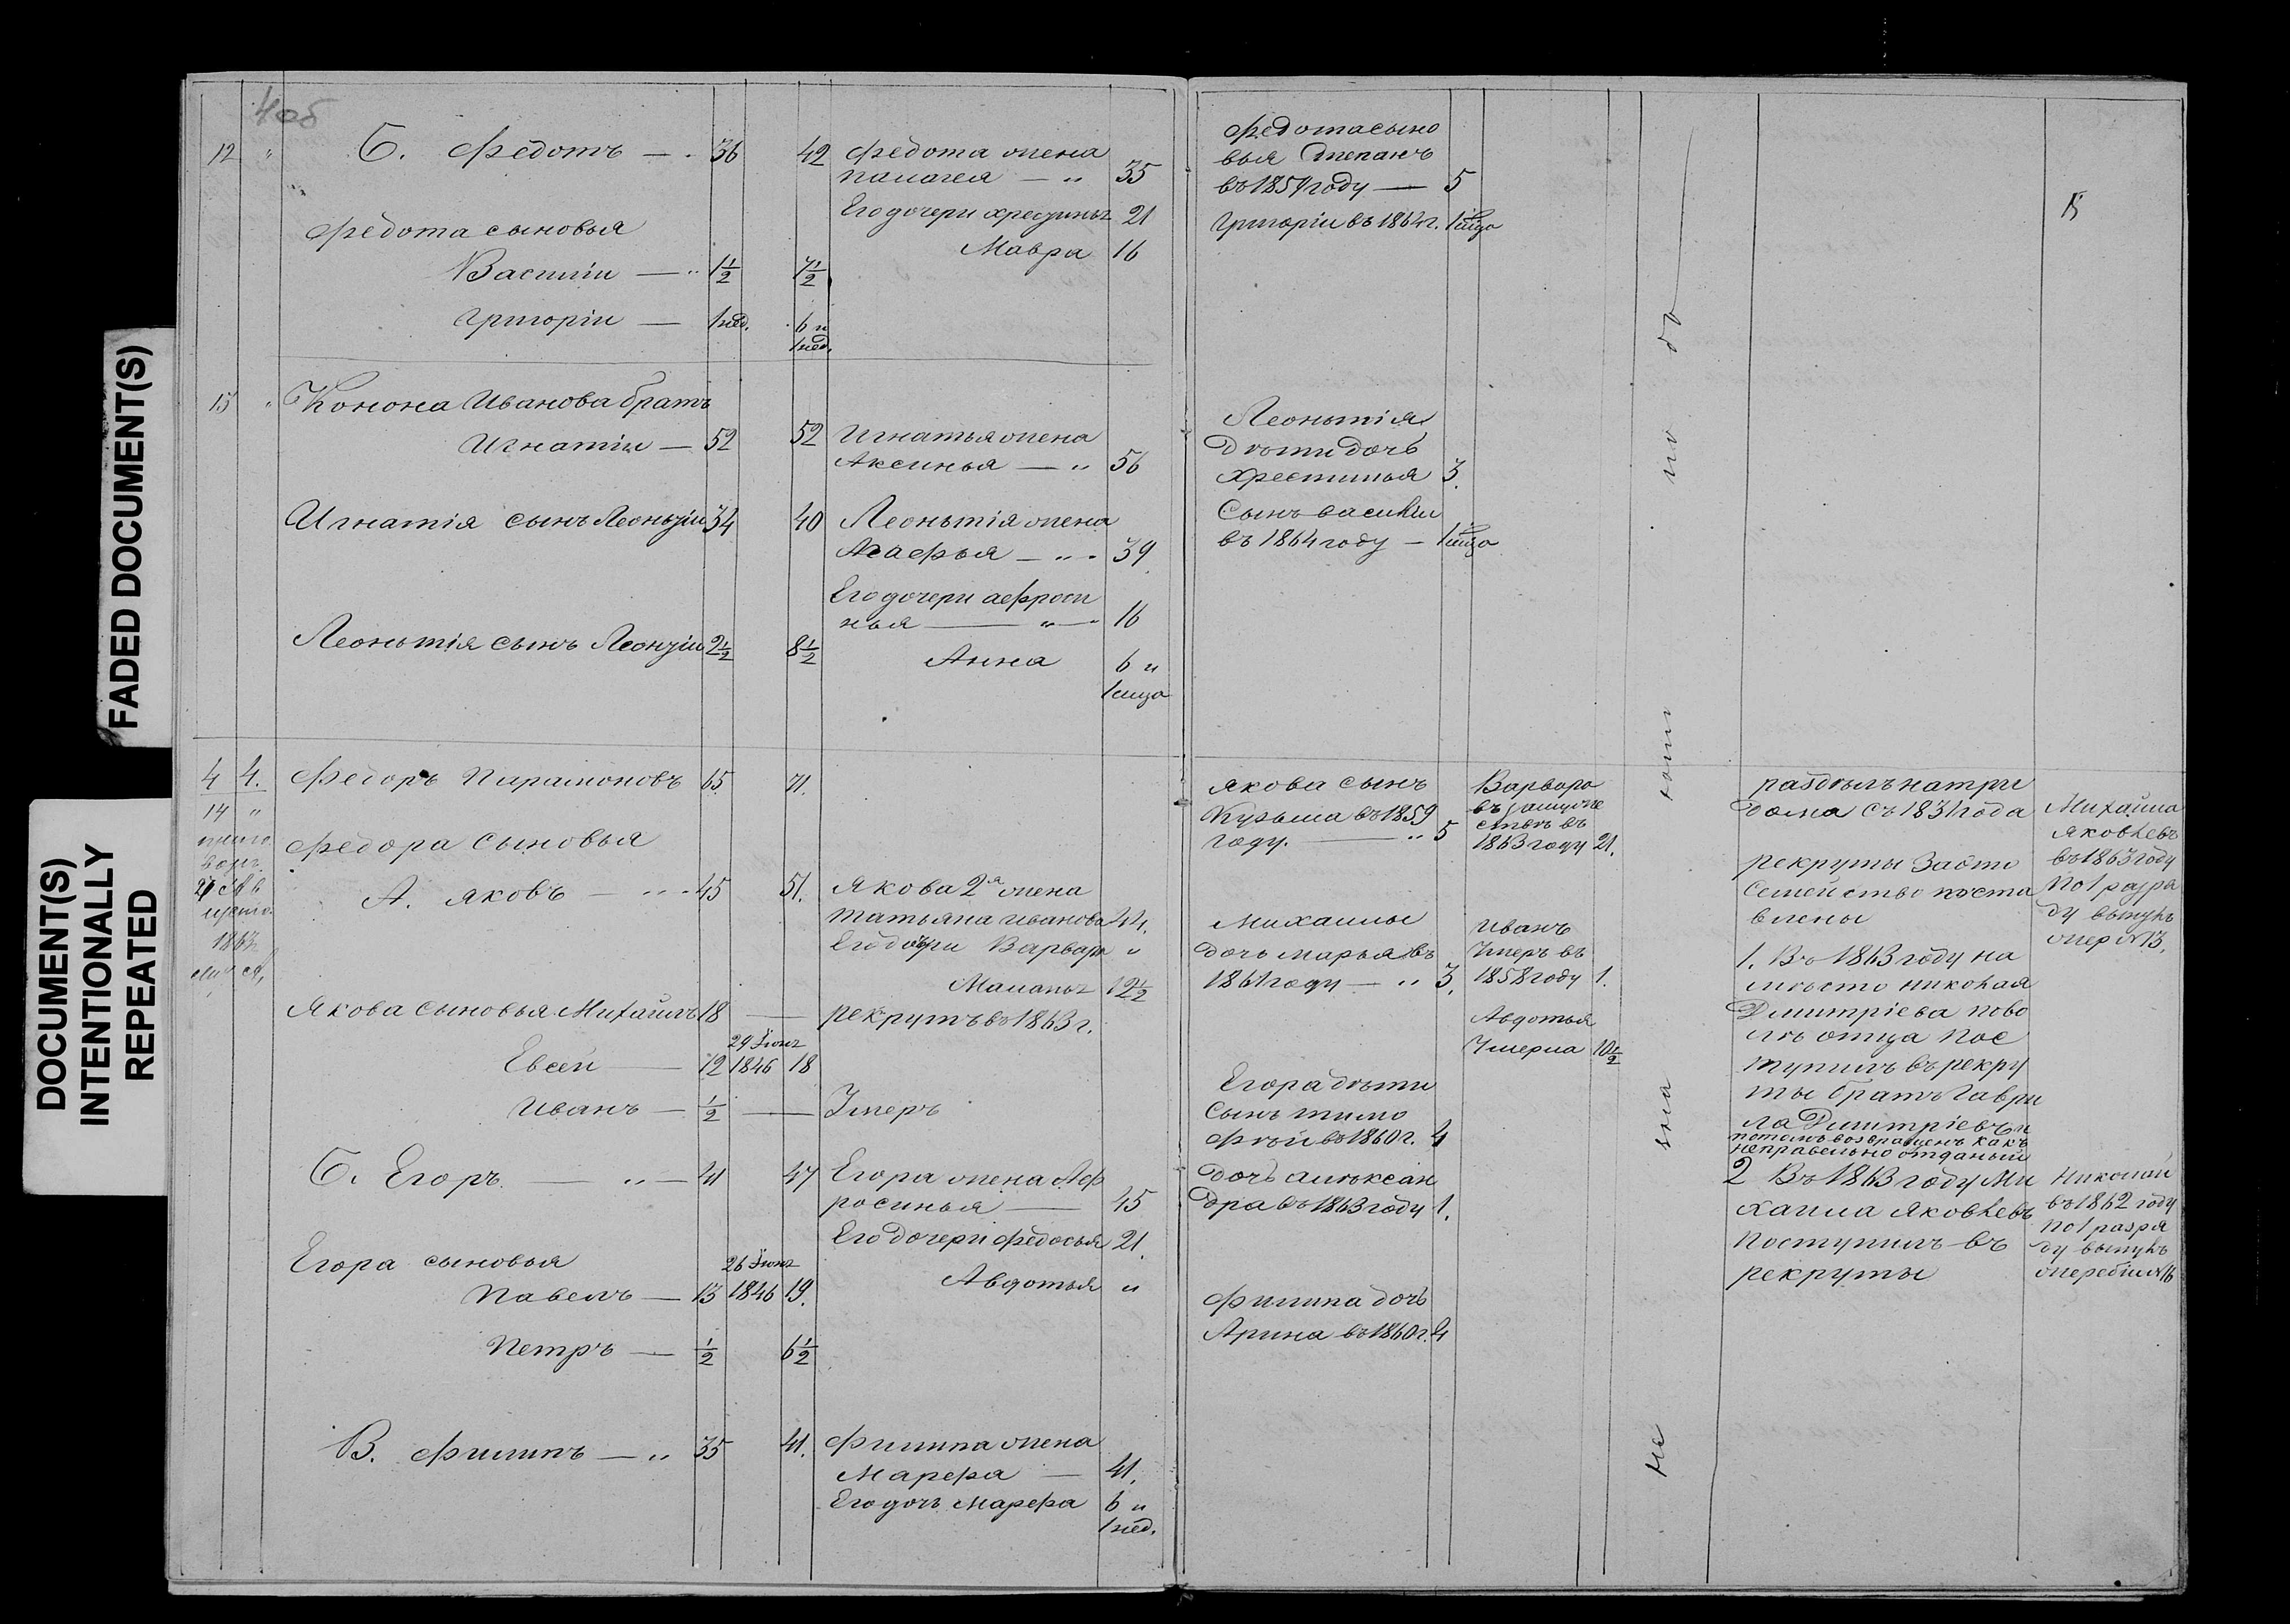 FADED DOCUMENT(S)
DOCUMENT(S)
INTENTIONALLY
REPEATED
4 об
12 " Б. Федотъ — 36 42 Федота жена
Палагея — " 35
Его дочери Хрестинья 21
Федота сыновья
Мавра 16
Василіи — " 1½ 7½
Григоріи — 1 нед. 6 и
1 нед.
13 " Конона Иванова братъ
Игнатіи — 52 52 Игнатья жена
Аксинья — " 56
Игнатія сынъ Леонтіи 34 40 Леонтія жена
Агафья — " 39
Его дочери Аефроси
нья — " — 16
Леонтія сынъ Леонтіи 2½ 8½
Анна 6 и
4 4. Федоръ Парамоновъ 65. 71.
14 "
Федора сыновья
А. Яковъ — " 45 51. Якова 2я жена
Татьяна Иванова 44.
Его дочери Варвара "
Маланья 12½
Якова сыновья Михайлъ 18 — рекрутъ въ 1863 г.
29 Іюня
Евсей — 12 1846 18
Иванъ — ½ — Умеръ
Б. Егоръ — " — 41 47 Егора жена Аф
росинья — 45
Его дочери Федосья 21.
Егора сыновья 26 Іюня
Авдотья "
Павелъ — 13 1846 19.
Петръ — ½ 6½
В. Филипъ — " 35 41. Филипа жена
Марефа — 41.
Его дочь Марефа 6 и
1 нед.
Федота сыно
вья Степанъ
въ 1859 году — 5
Григоріи въ 1864 г.
Леонтія
дѣти дочь
Хрестинья 3.
Сынъ Василіи
въ 1864 году —
Якова сынъ
Кузьма въ 1859
году. — " 5
Варвара
въ замуже
ствѣ въ
1863 году 21.
Михаилы
дочь Марья въ
1861 году — " 3.
Иванъ
Умеръ въ
1858 году 1.
Авдотья
Умерла 10½
Егора дѣти
Сынъ Тимо
фѣй въ 1860 г. 4
дочь Алѣксан
дра въ 1863 году 1.
Филипа дочь
Арина въ 1860 г. 4
раздѣлъ на три
дома съ 1831 года
рекруты За сти
Семейство поста
влены
1. Въ 1863 году на
мѣсто Николая
Дмитріева по во
лѣ отца пос
тупилъ въ рекру
ты братъ Гаври
ла Дмитріевъ и
потомъ возвращенъ какъ
неправельно отданый
2 Въ 1863 году Ми
хаила Яковлевъ
поступилъ въ
рекруты
Михайла
Яковлевъ
въ 1863 году
по 1 разря
ду вынулъ
жер № 13.
Николай
въ 1862 году
по 1 разря
ду вынулъ
жеребіи № 16